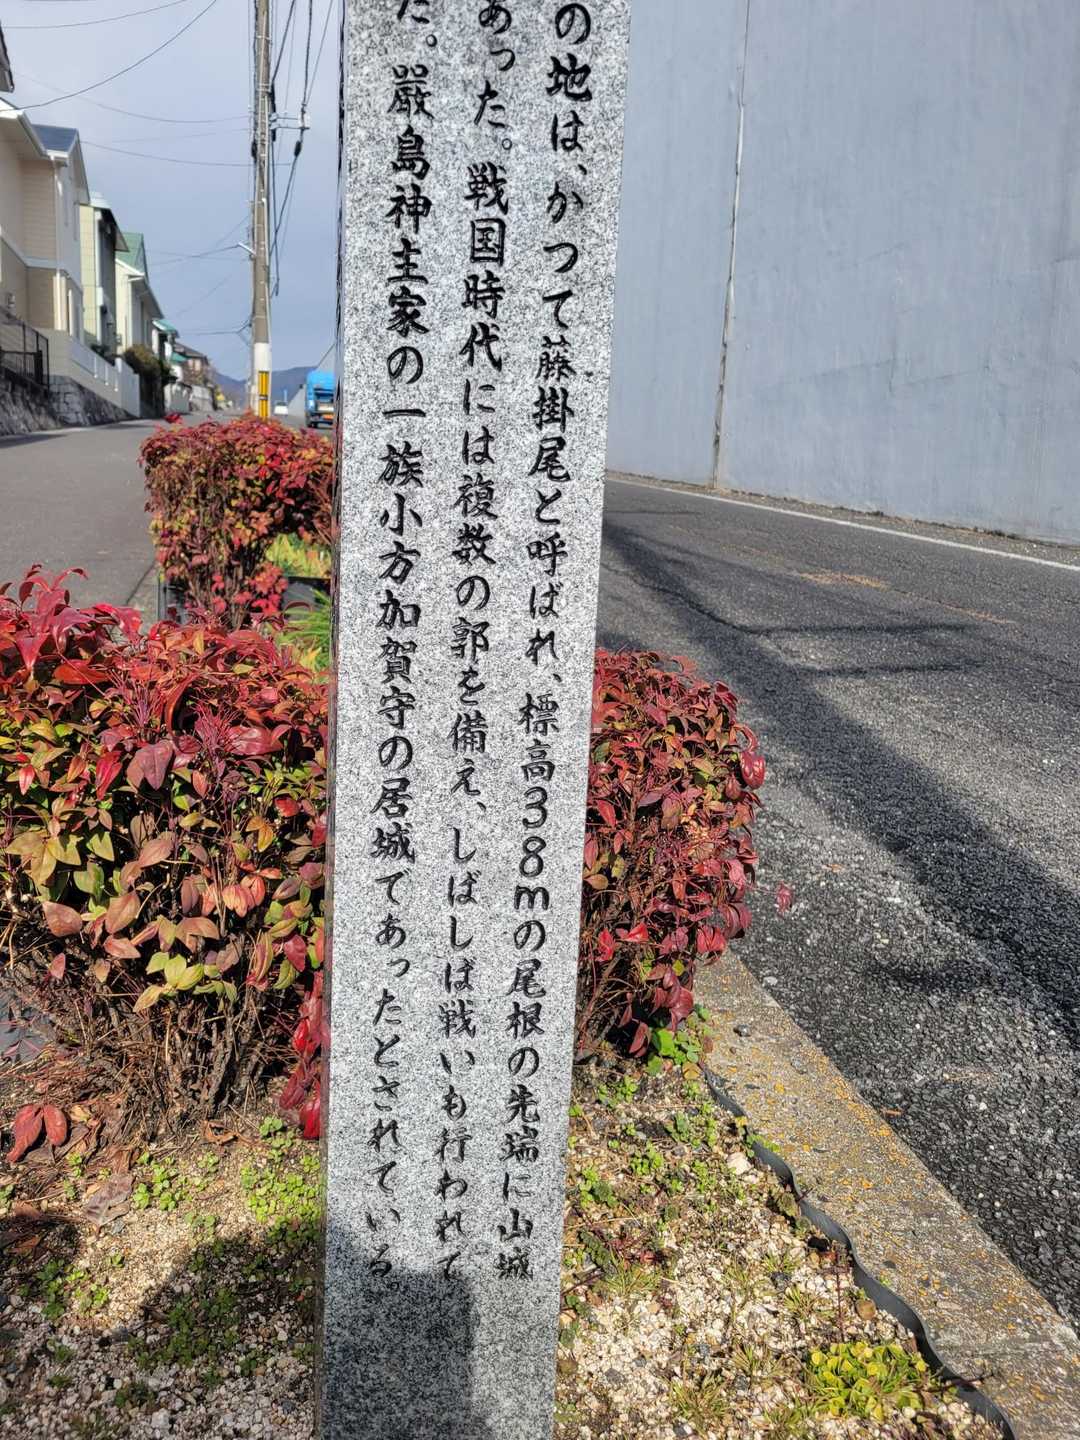 の地は、かつて藤掛尾と呼ばれ、標高38mの尾根の先端に山城
あった。戦国時代には複数の郭を備え、しばしば戦いも行われて
た。厳島神主家の一族小方加賀守の居城であったとされている。